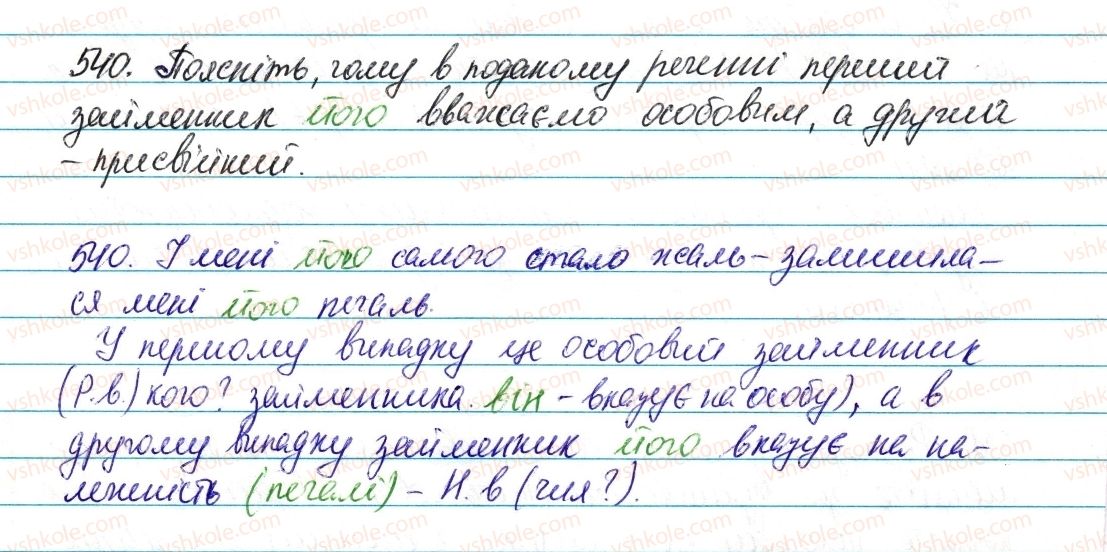 540. Поясніть, чому в поданому реченні перший
займенник його вважаємо особовим, а другий
– присвійний.
540. І мені його самого стало жаль – залишила-
ся мені його печаль.
У першому випадку це особовий займенник
(Р.в.) кого? займенника він – вказує на особу), а в
другому випадку займенник його вказує на на-
лежність (печалі) – Н. в (чия?).